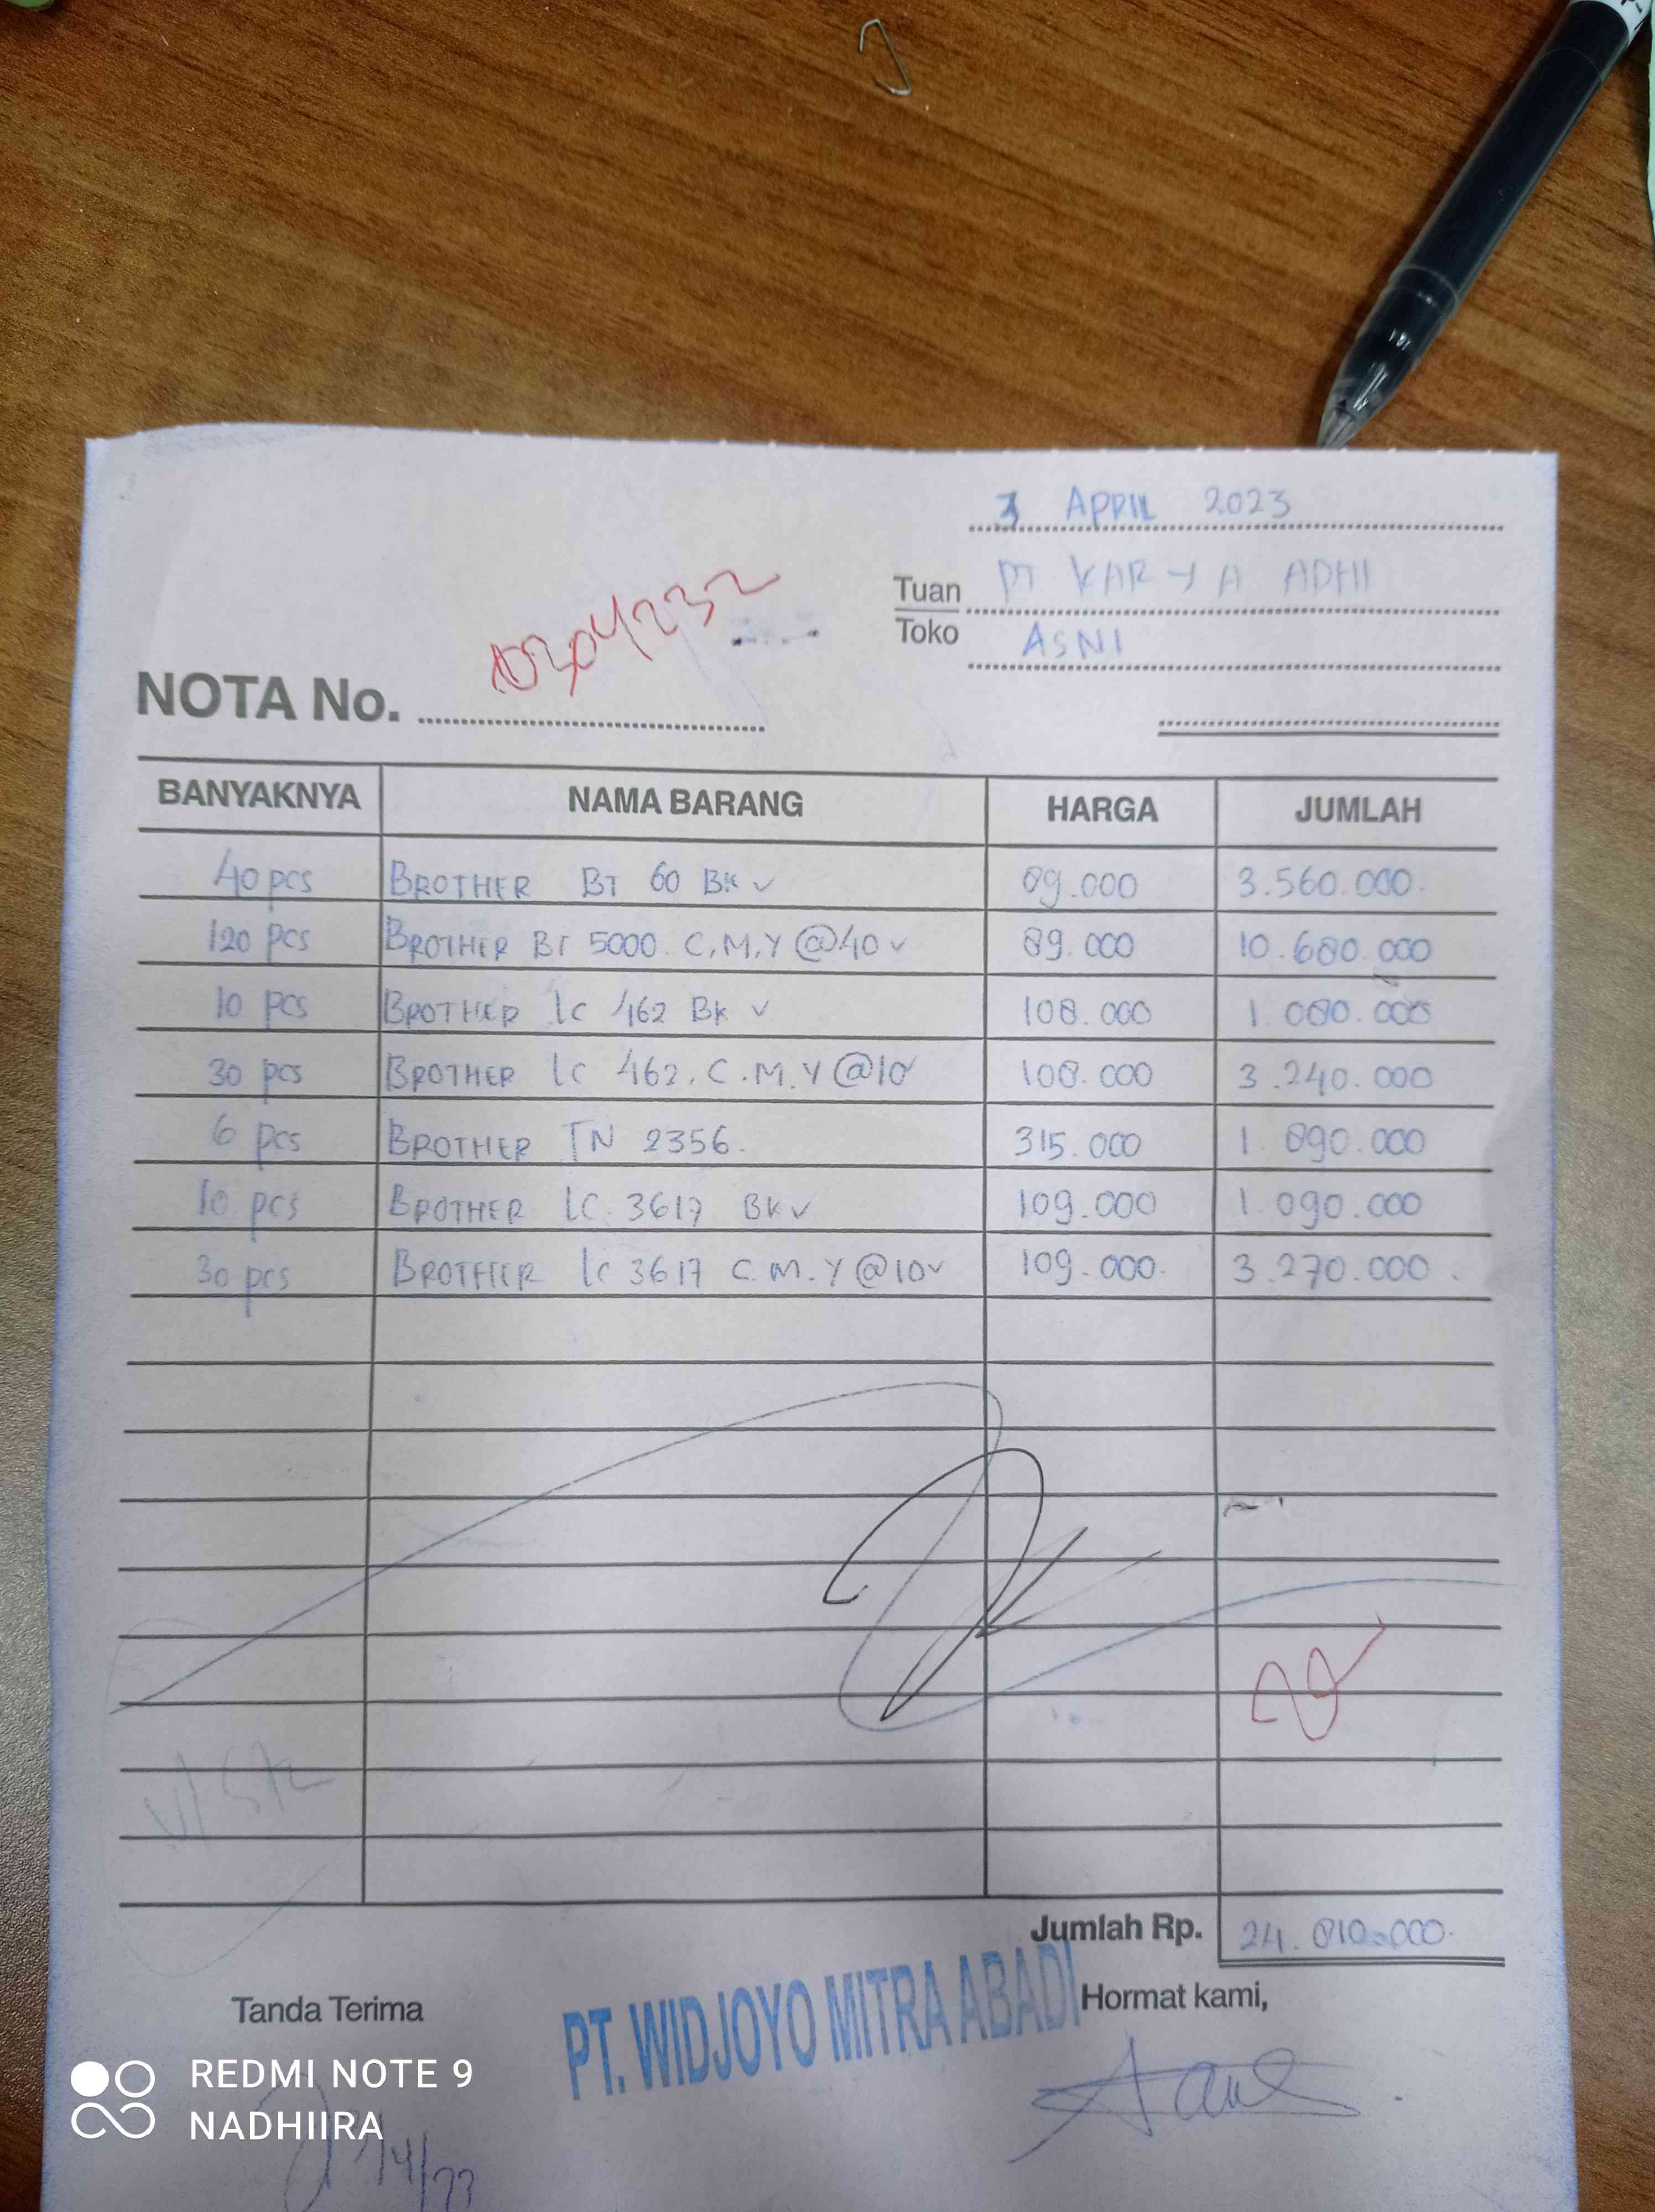 3 APRIL 2023
Tuan PT KARYA ADHI
Toko ASNI
NOTA No. 0304232
BANYAKNYA NAMA BARANG HARGA JUMLAH
40 pcs BROTHER BT 60 BK ✓ 89.000 3.560.000.
120 pcs BROTHER BT 5000. C,M,Y @40 ✓ 89.000 10.680.000
10 pcs BROTHER LC 462 BK ✓ 108.000 1.080.000
30 pcs BROTHER LC 462. C.M.Y @10 108.000 3.240.000
6 pcs BROTHER TN 2356. 315.000 1.890.000
10 pcs BROTHER LC. 3617 BK ✓ 109.000 1.090.000
30 pcs BROTHER LC 3617 C.M.Y @10 ✓ 109.000. 3.270.000.
Jumlah Rp. 24.810.000.
Tanda Terima
PT. WIDJOYO MITRA ABADI
Hormat kami,
REDMI NOTE 9
NADHIIRA